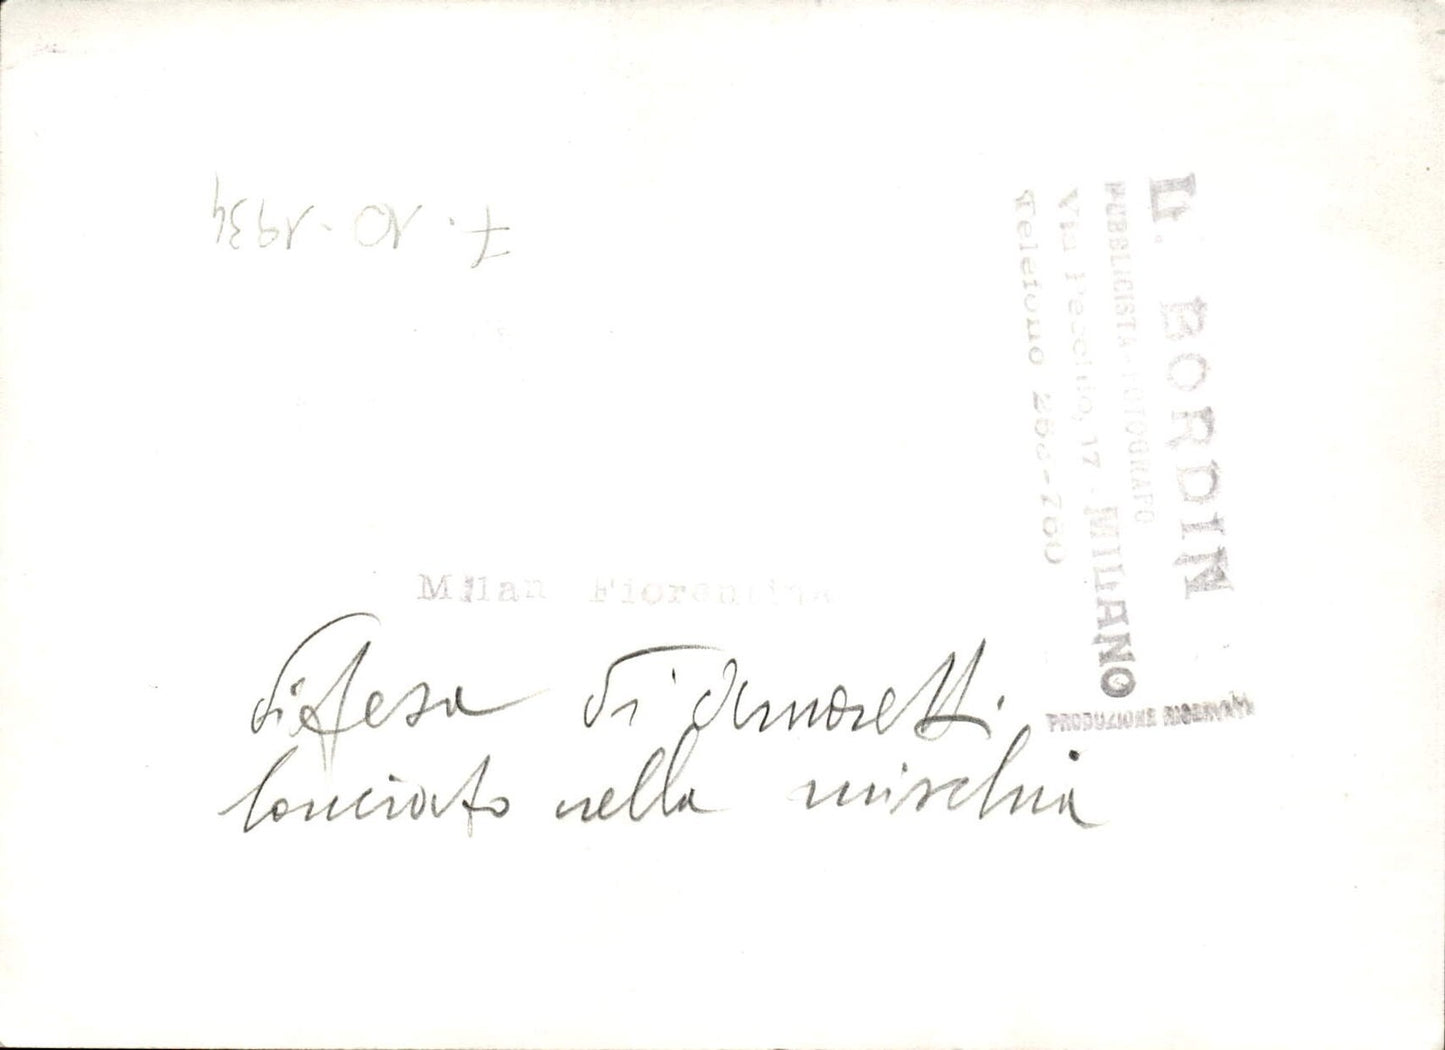 7. 10. 1934
L. BORDIN
PUBBLICISTA-FOTOGRAFO
Via Pecchio, 17 - MILANO
Telefono
PRODUZIONE RISERVATA
Milan Fiorentina
difesa di Amoretti
lanciato nella mischia